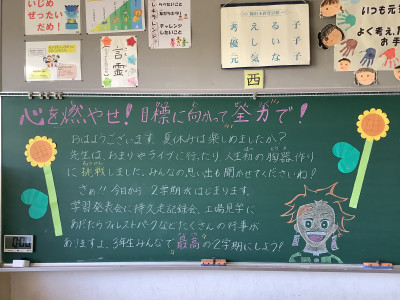 いじめ
ぜったい
だめ!
言霊
考える子
優しい子
元気な子
西
いつも元
よく考え
お手
心を燃やせ!目標に向かって全力で!
おはようございます。夏休みは楽しめましたか?
先生は、おまりやライブに行ったり、人生初の陶器作り
に挑戦しました。みんなの思い出も聞かせてくださいね!
さぁ!!今日から2学期がはじまります。
学習発表会に持久走記録会、工場見学に
あだたらフォレストパークなどたくさんの行事が
ありますよ。3年生みんなで"最高"の2学期にしよう!